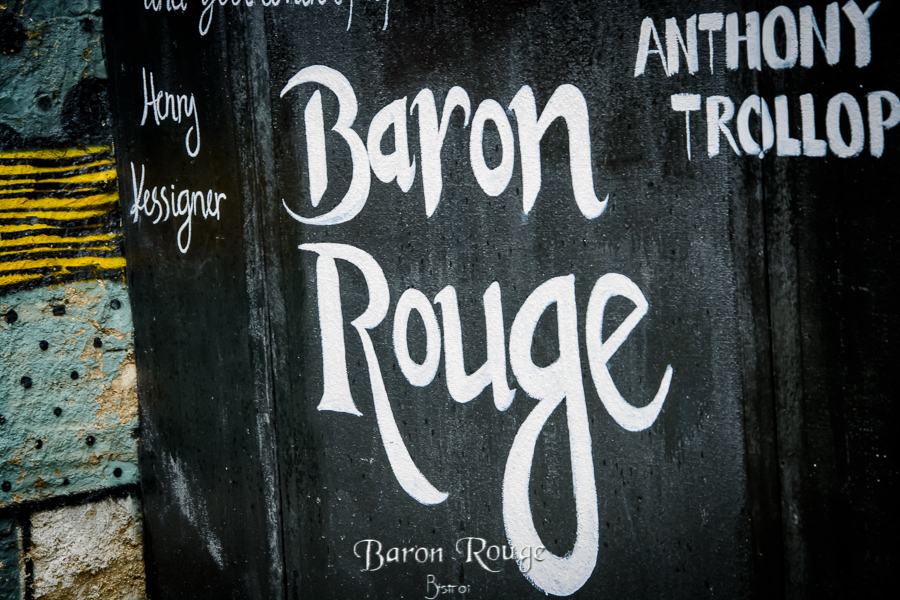 Henry
Kessigner
Baron
Rouge
ANTHONY
TROLLOP
Baron Rouge
Bistrot